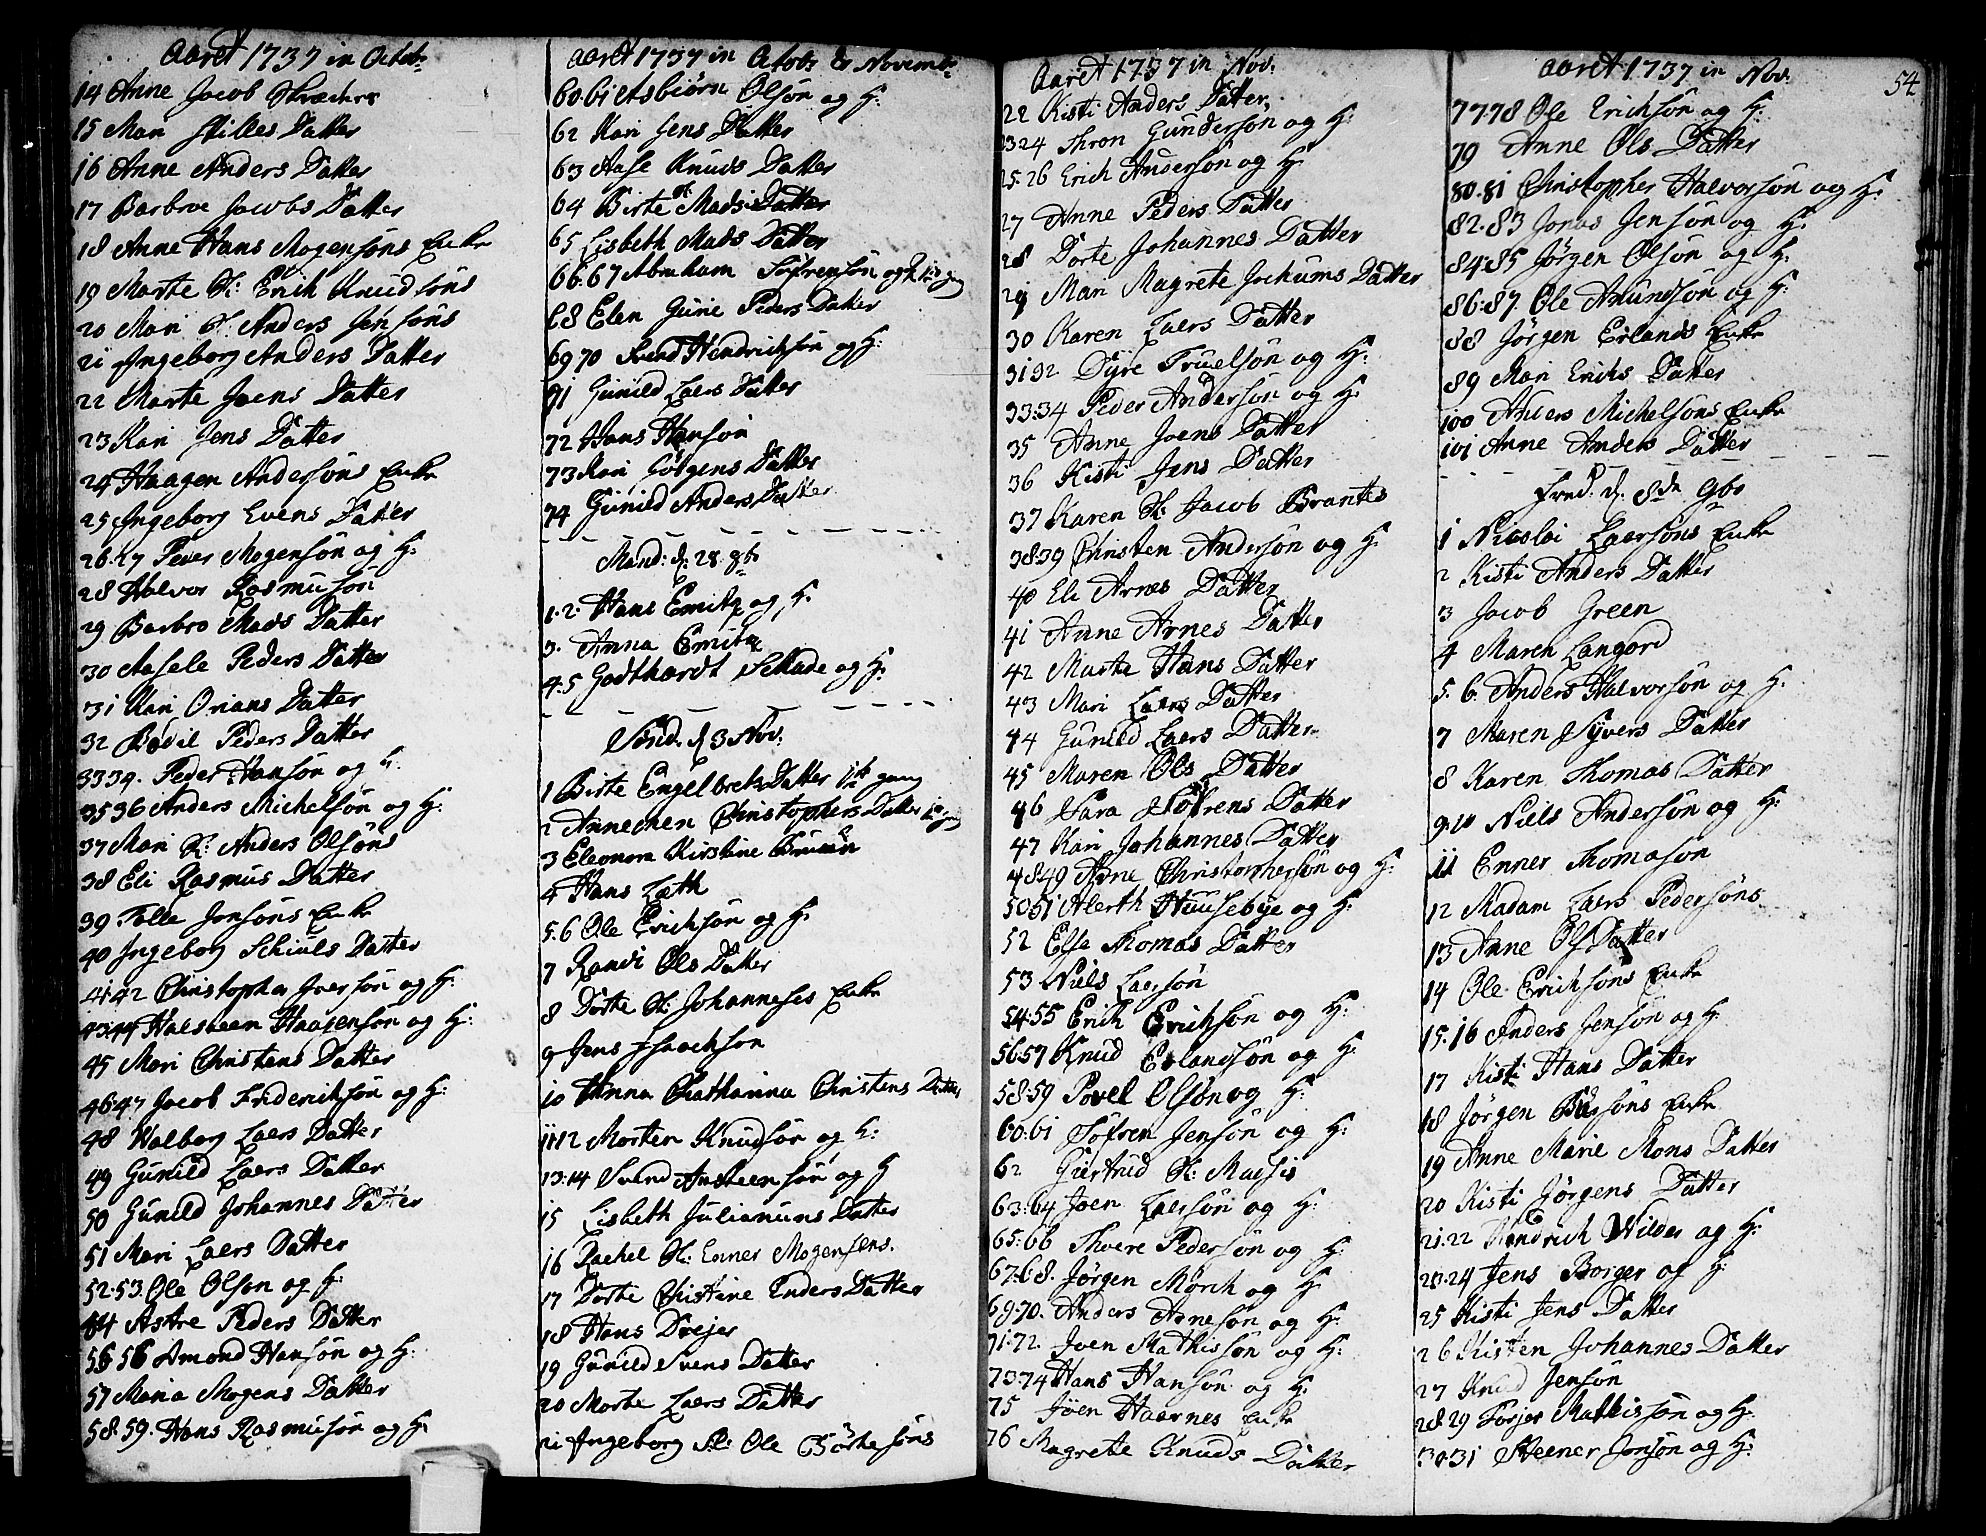 Aaret 1737 in Octobr
14 Anne Jacob Skræders
15 Mari Hilles Datter
16 Anne Anders Datter
17 Barbroe Jacobs Datter
18 Anne Hans Mogensøns Enke
19 Marte Sl: Erik Knudsøns
20 Mari Sl: Anders Jensøns
21 Ingeborg Anders Datter
22 Marte Joens Datter
23 Kari Jens Datter
24 Haagen Andersøns Enke
25 Ingeborg Evens Datter
26.27 Peder Mogensøn og H:
28 Halvor Rasmusøn
29 Barbro Mads Datter
30 Aasele Peders Datter
31 Kari Orians Datter
32 Bodil Peders Datter
33 34. Peder Hansøn og H.
35 36 Anders Michelsøn og H:
37 Mari Sl: Anders Olsøns
38 Eli Rasmus Datter
39 Tolle Jonsøns Enke
40 Ingeborg Schiuls Datter
41.42 Christopher Iversøn og H:
43.44 Halsteen Haagensøn og H:
45 Mari Christens Datter
46.47 Jacob Friderichsøn og H:
48 Walborg Laers Datter
49 Gunild Laers Datter
50 Gunild Johannes Datter
51 Mari Laers Datter
52.53. Ole Olson og H:
44 Astre Peders Datter
55 56 Amond Hansøn og H:
57 Maria Mogens Datter
58.59. Hans Rasmusøn og H:
Aaret 1737 in Octobr & Novembr
60.61 Asbiørn Olsøn og H:
62 Kari Jens Datter
63 Aase Knuds Datter
64 Birte Mads Datter
65 Lisbeth Mads Datter
66.67 Abraham Søfrensøn og H: 1te gang
68 Elen Gurie Peders Datter
69 70 Svend Hendrichsøn og H:
71 Gunild Laers Datter
72 Hans Hansøn
73 Kari Jørgens Datter
74 Gunild Anders Datter
Mand: d: 28. 8br
1.2. Hans Emitz og H.
3. Anna Emitz
4.5 Godthardt Schade og H:
Sønd. d 3 Nov:
1 Birte Engelbrets Datter 1te gang
2 Annechen Christophers Datter 1te gang
3 Eleonora Kirstine Bruun
4 Hans Lath
5.6 Ole Erichsøn og H:
7 Randi Ols Datter
8 Dorte Sl: Johanneses Enke
9 Jens Isaachsøn
10 Anna Chatharina Christens Datter
11 12 Morten Knudsøn og H:
13.14 Svend Ansteensøn og H
15 Lisbeth Julianuns Datter
16 Rachel Sl: Enner Mogensens.
17 Dorte Christine Enders Datter
18 Hans Dvejer
19 Gunild Svens Datter
20 Morte Laers Datter
21 Ingeborg Sl: Ole Børkesøns
Aaret 1737 in Nov:
22 Kisti Anders Datter
23 24 Thron Gundersøn og H:
25.26 Erich Andersøn og H:
27 Anne Peders Datter
28 Dorte Johannes Datter
29 Mari Magrete Jochums Datter
30 Karen Laers Datter
31 32 Dyre Truelsøn og H:
33:34 Peder Andersøn og H:
35 Anne Joens Datter
36 Kisti Jens Datter
37 Karen Sl: Jacob Brantes
38 39 Christen Andersøn og H:
40 Eli Arnes Datter
41 Anne Arnes Datter
42 Marte Hans Datter
43 Mari Laers Datter
44 Gunild Laers Datter
45 Maren Ols Datter
46 Sara Søfrens Datter
47 Kari Johannes Datter
48 49 Arne Christophersøn og H:
50 51 Alerth Huusebye og H:
52 Else Thomas Datter
53 Niels Laersøn
54:55 Erich Erichsøn og H:
56 57 Knud Erlandsøn og H:
58.59 Povel Olsøn og H:
60.61 Søfren Jensøn og H:
62 Giertrud Sl: Madsis
63:64 Joen Laersøn og H:
65:66 Thore Pedersøn og H:
67:68. Jørgen Mørch og H:
69.70. Anders Arnesøn og H:
71.72. Joen Mathisøn og H:
73.74 Hans Hansøn og H:
75 Jøen Haarnes Enke
76 Magrete Knuds Datter
Aaret 1737 in Nov.
54
77 78 Ole Erichsøn og H:
79 Anne Ols Datter
80.81 Christopher Halvorsøn og H:
82.83 Jonas Jensøn og H:
84:85 Jørgen Olsøn og H:
86:87. Ole Amundsøn og H:
88 Jørgen Erlands Enke
89 Mari Erichs Datter
100 Anders Michelsøns Enke
101 Anne Anders Datter
Fred. d. 8de 9br
1 Nicolai Laersøns Enke
2 Kisti Anders Datter
3 Jacob Green
4 Maren Langord
5.6. Anders Halvorsøn og H.
7 Maren Syvers Datter
8 Karen Thomas Datter
9.10 Niels Andersøn og H:
11 Enner Thomason
12 Madam Laers Pedersøns
13 Anne Ols Datter
14 Ole Erichsøns Enke
15.16 Anders Jensøn og H
17 Kisti Hans Datter
18 Jørgen Buesøns Enke
19 Anne Marie Mons Datter
20 Kisti Jørgens Datter
21.22 Hendrich Wilder og H:
23.24 Jens Borger og H:
25 Kisti Jens Datter
26 Kisten Johannes Datter
27 Knud Jensøn
28 29 Torjer Mathisøn og H.
30.31 Steener Jonsøn og H: